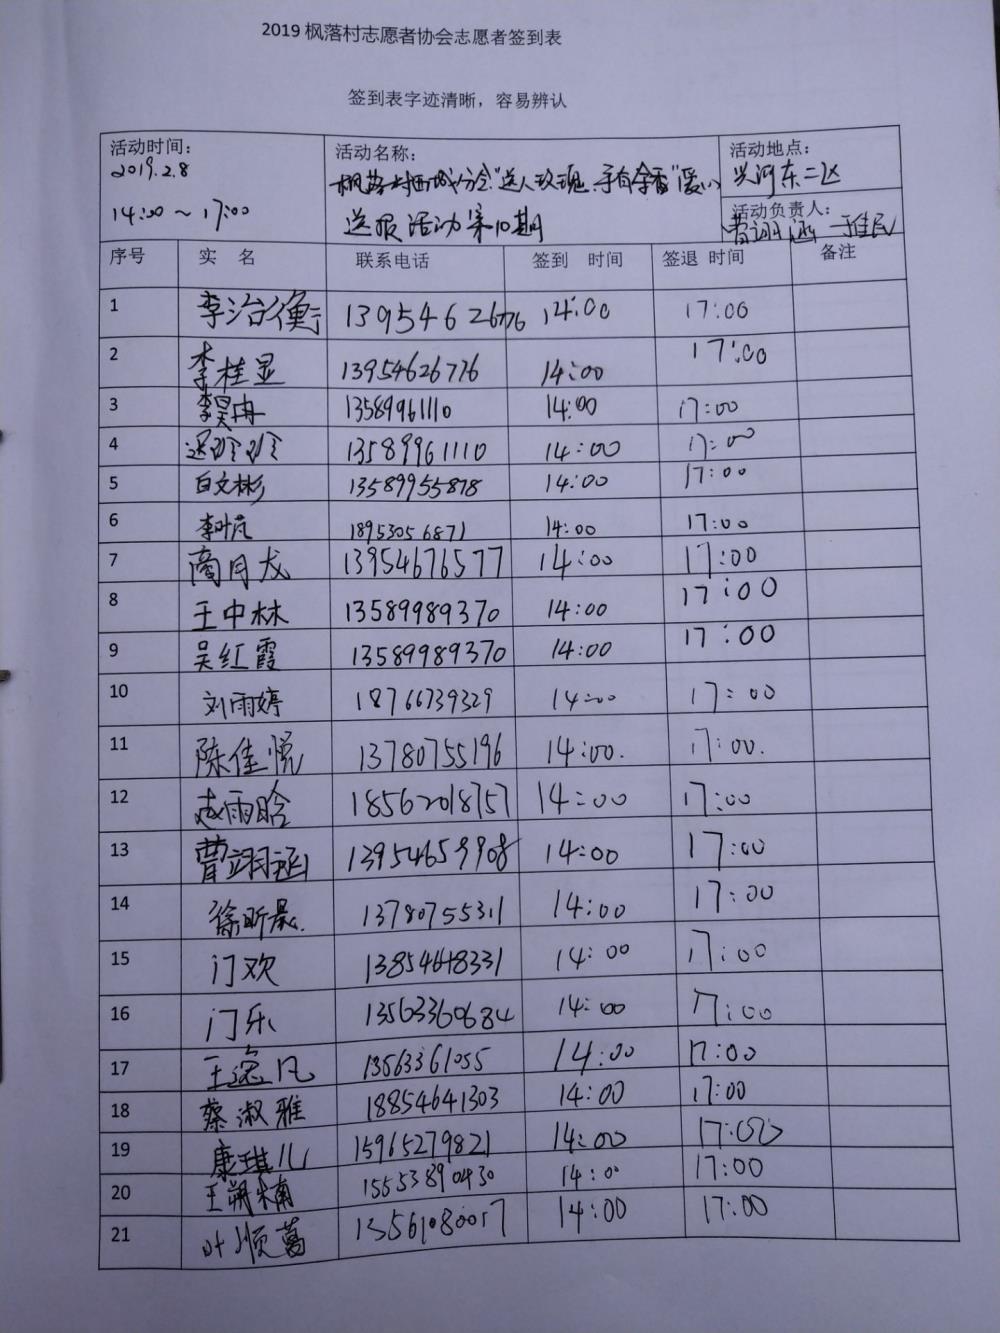 2019 枫落村志愿者协会志愿者签到表
签到表字迹清晰，容易辨认
活动时间: 活动名称: 活动地点:
2019.2.8 枫落村西城分会"送人玫瑰.手有余香"爱心 兴河东二区
14:00 ~ 17:00 送报活动第10期 活动负责人:
曹翊涵
序号 实 名 联系电话 签到 时间 签退 时间 备注
1 李治衡 13954626776 14:00 17:00
2 李桂显 13954626776 14:00 17:00
3 李昊冉 13589961110 14:00 17:00
4 13589961110 14:00 17:00
5 白文彬 13589955878 14:00 17:00
6 18953056871 14:00 17:00
7 商月龙 13954676577 14:00 17:00
8 王中林 13589989370 14:00 17:00
9 吴红霞 13589989370 14:00 17:00
10 刘雨婷 18766739329 14:00 17:00
11 陈佳悦 13780755196 14:00. 17:00.
12 赵雨晗 18562018757 14:00 17:00
13 曹翊涵 13954659908 14:00 17:00
14 徐昕晨. 13780755311 14:00 17:00
15 门欢 13854648331 14:00 17:00
16 门乐 13563360684 14:00 17:00
17 王逸凡 13563361055 14:00 17:00
18 蔡淑雅 18854641303 14:00 17:00
19 康琪儿 15965279821 14:00 17:00
20 王朔楠 15553890430 14:00 17:00
21 叶顺葛 13561080057 14:00 17:00